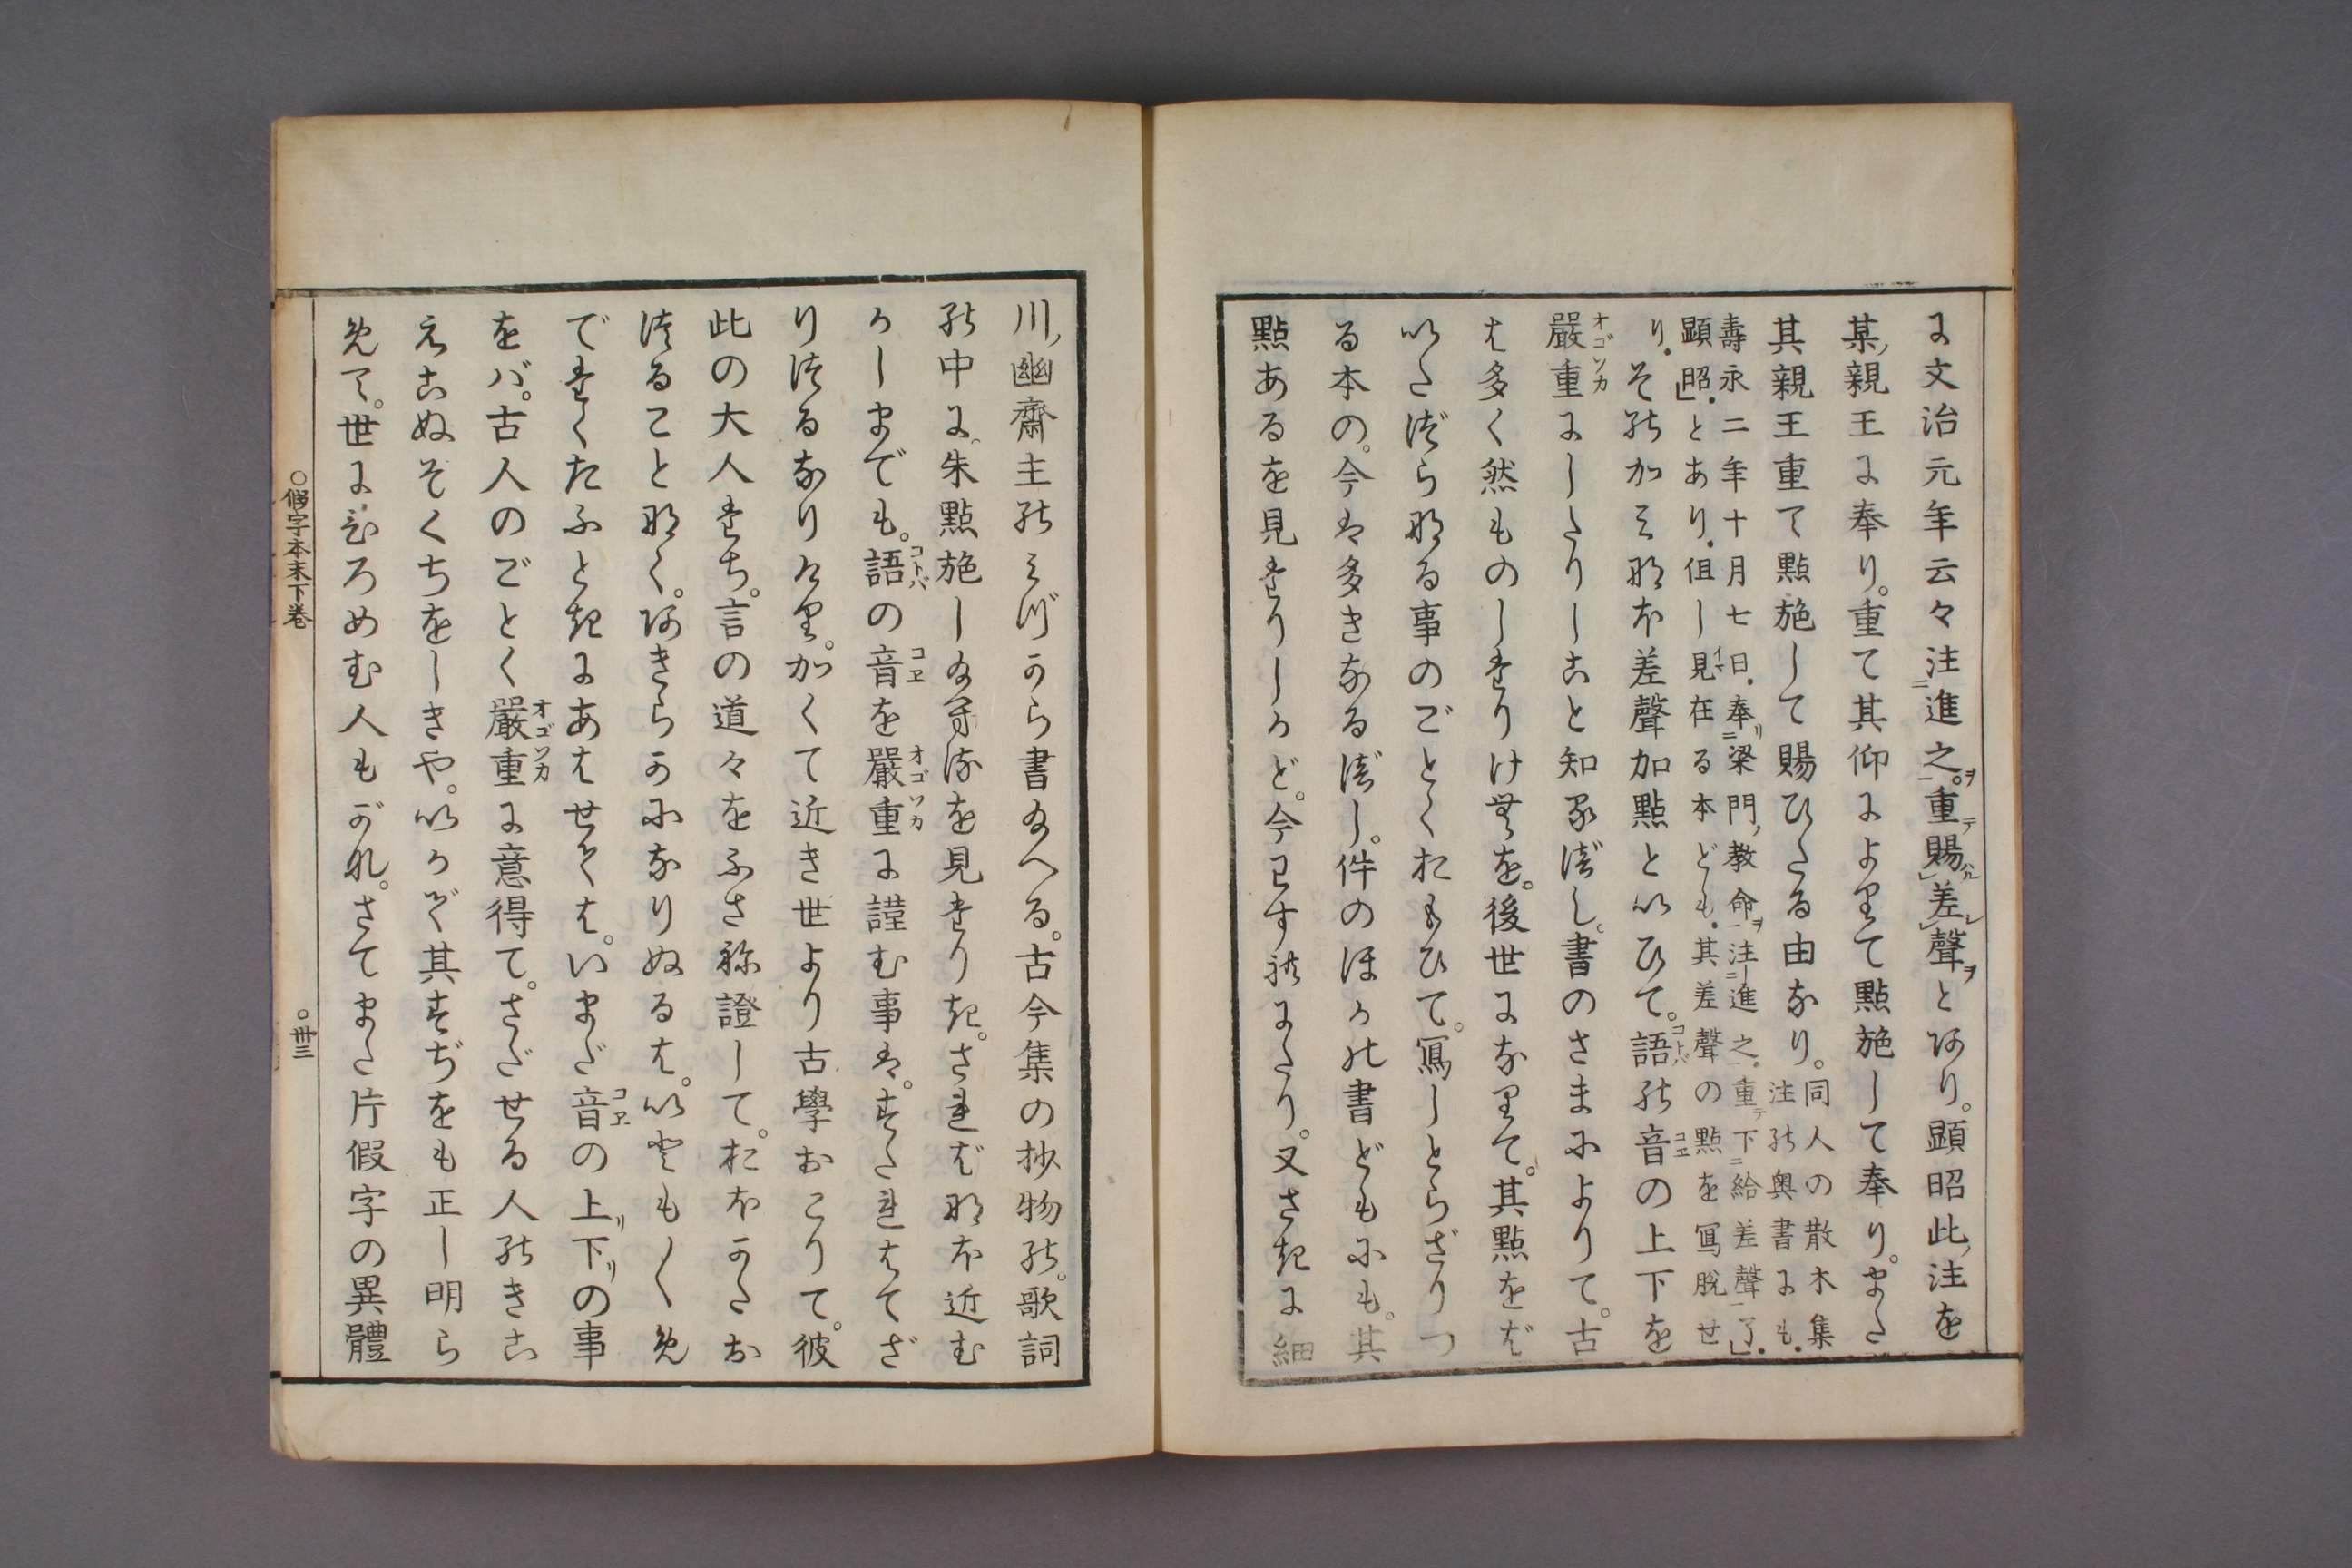 に文治元年云々注進之。重賜差聲とあり。顯昭此注を
某親王に奉り。重て其仰によりて點施して奉り。また
其親王重て點施して賜ひたる由なり。同人の散木集
注の奥書にも。
壽永二年十月七日。奉梁門教命注進之。重下給差聲了」。
顯昭」。とあり。但し見在る本ども。其差聲の點を寫脱せ
り。そのかみなほ差聲加點といひて。語の音の上下を
嚴重にしたりしこと知るべし。書のさまによりて。古
は多く然ものしたりけむを。後世になりて。其點をば
いたづらなる事のごとくおもひて。寫しとらざりつ
る本の。今は多きなるべし。件のほかの書どもにも。其
點あるを見たりしかど。今わすれにたり。又さきに細
川幽齋主のみづから書給へる。古今集の抄物の。歌詞
の中に。朱點施し給へるを見たりき。さればなほ近む
かしまでも。語の音を嚴重に謹む事は。すたれはてざ
りつるなりけり。かくて近き世より古學おこりて。彼
此の大人たち。言の道々をふさね證して。おほかたお
つることなく。あきらかになりぬるは。いともく め
でたくたふときにあはせては。いまだ音の上下の事
をバ。古人のごとく嚴重に意得て。さだせる人のきこ
えこぬぞくちをしきや。いかで其すぢをも正し明ら
めて。世にひろめむ人もがな。さてまた片假字の異體
○假字本末下卷
○卅三